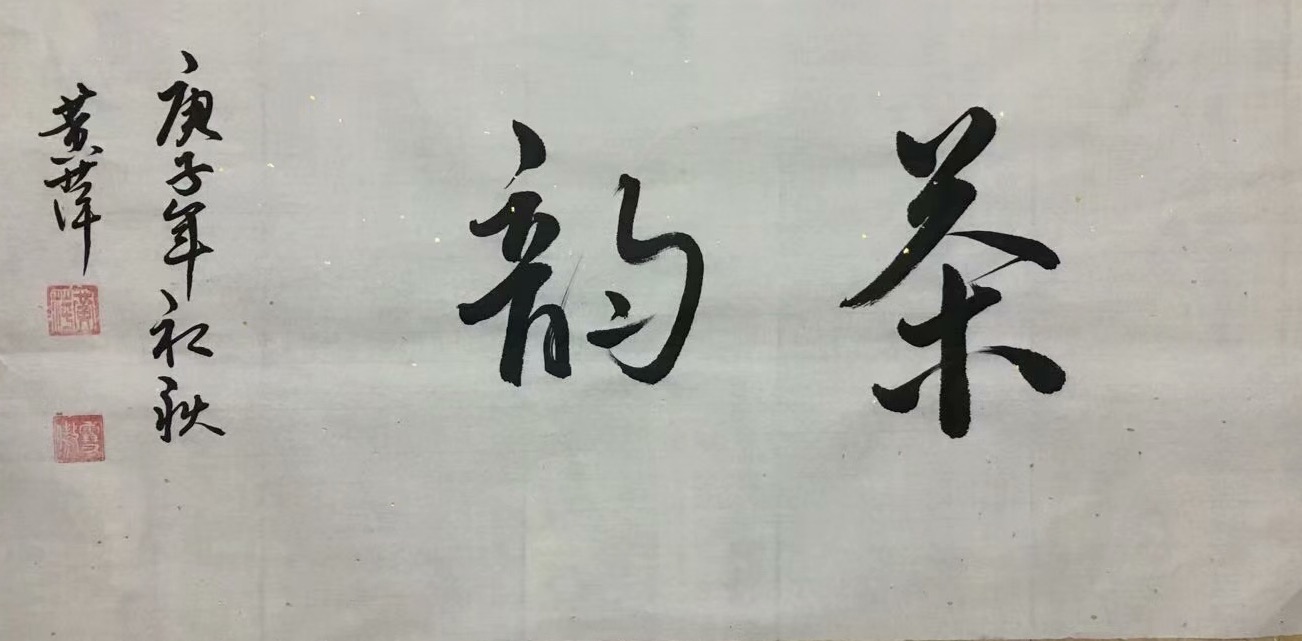 茶韵
庚子年初秋
黄萍